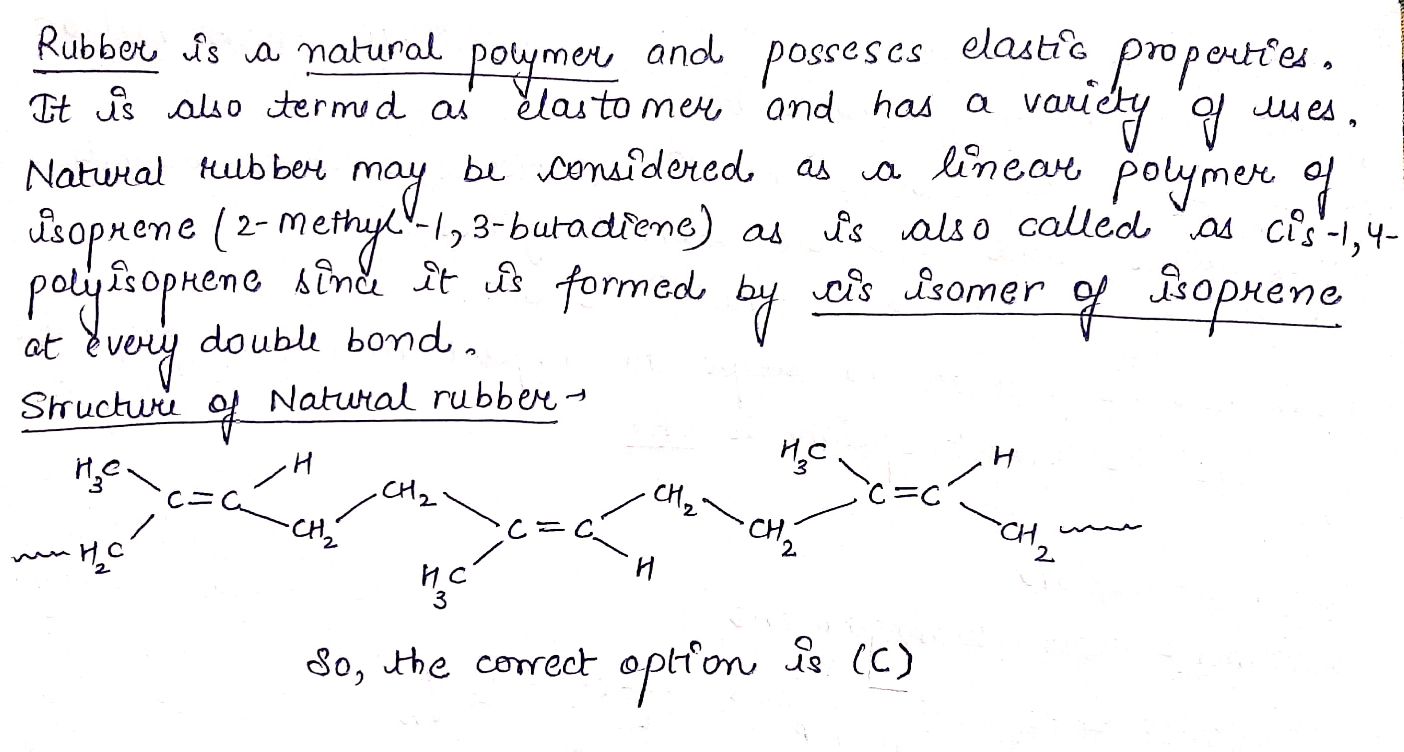 Rubber is a natural polymer and posseses elastic properties.
It is also termed as elastomer and has a variety of uses.
Natural rubber may be considered as a linear polymer of
isoprene (2-methyl-1,3-butadiene) as is also called as cis-1,4-
polyisoprene since it is formed by cis isomer of isoprene
at every double bond.
Structure of Natural rubber→
H3C H H3C H
C=C CH2 CH2 C=C
H2C CH2 C=C CH2 CH2
H3C H
So, the correct option is (C)